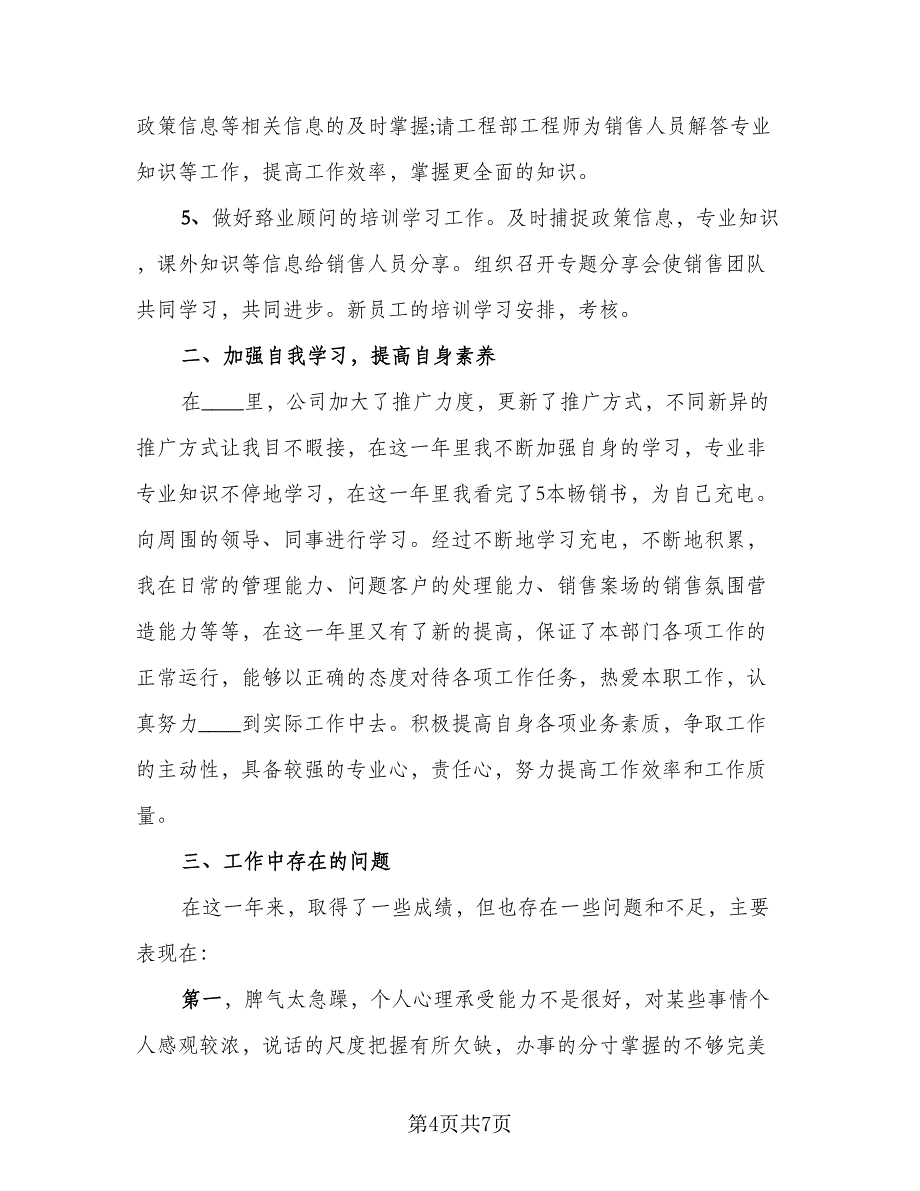 政策信息等相关信息的及时掌握;请工程部工程师为销售人员解答专业
知识等工作，提高工作效率，掌握更全面的知识。
5、做好臵业顾问的培训学习工作。及时捕捉政策信息，专业知识
，课外知识等信息给销售人员分享。组织召开专题分享会使销售团队
共同学习，共同进步。新员工的培训学习安排，考核。
二、加强自我学习，提高自身素养
在____里，公司加大了推广力度，更新了推广方式，不同新异的
推广方式让我目不暇接，在这一年里我不断加强自身的学习，专业非
专业知识不停地学习，在这一年里我看完了5本畅销书，为自己充电。
向周围的领导、同事进行学习。经过不断地学习充电，不断地积累，
我在日常的管理能力、问题客户的处理能力、销售案场的销售氛围营
造能力等等，在这一年里又有了新的提高，保证了本部门各项工作的
正常运行，能够以正确的态度对待各项工作任务，热爱本职工作，认
真努力____到实际工作中去。积极提高自身各项业务素质，争取工作
的主动性，具备较强的专业心，责任心，努力提高工作效率和工作质
量。
三、工作中存在的问题
在这一年来，取得了一些成绩，但也存在一些问题和不足，主要
表现在：
第一，脾气太急躁，个人心理承受能力不是很好，对某些事情个
人感观较浓，说话的尺度把握有所欠缺，办事的分寸掌握的不够完美
第4页共7页